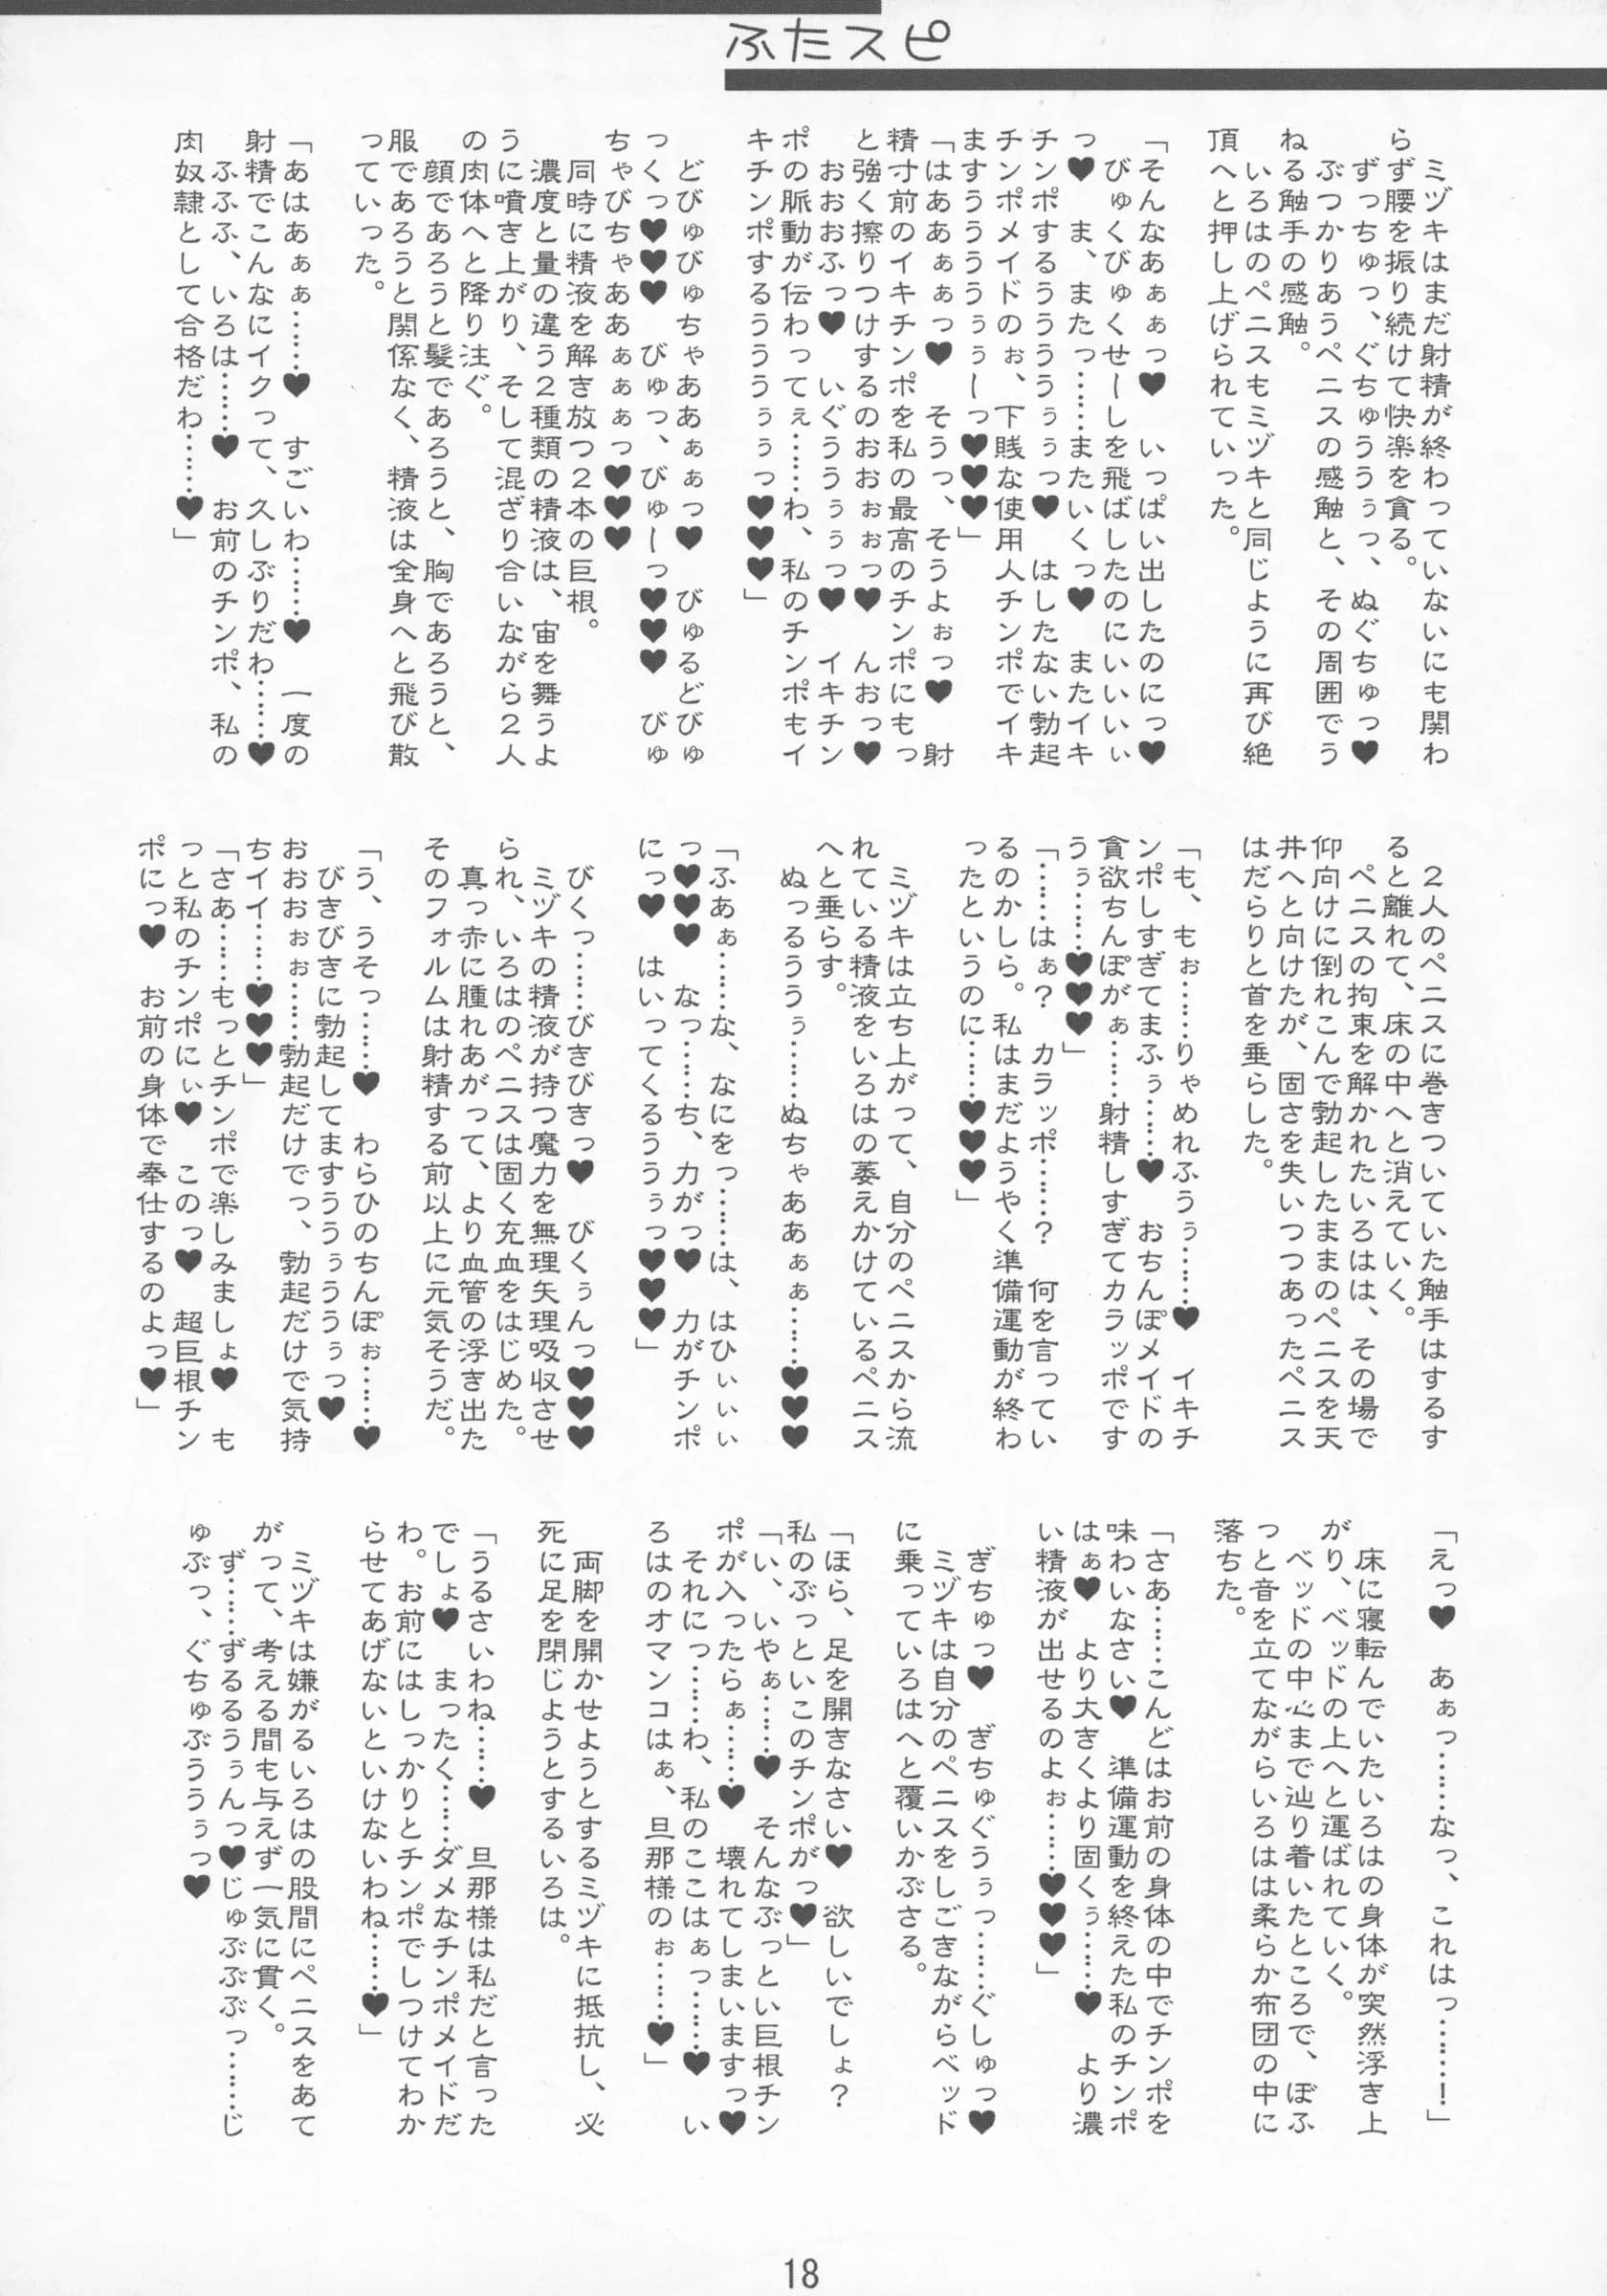 ふたスピ
　ミヅキはまだ射精が終わっていないにも関わ
らず腰を振り続けて快楽を貪る。
　ずっちゅっ、ぐちゅううぅっ、ぬぐちゅっ♥
　ぶつかりあうペニスの感触と、その周囲でう
ねる触手の感触。
　いろはのペニスもミヅキと同じように再び絶
頂へと押し上げられていった。
「そんなあぁぁっ♥　いっぱい出したのにっ♥
　びゅくびゅくせーしを飛ばしたのにいいいぃ
っ♥　ま、またっ……またいくっ♥　またイキ
チンポするうううぅぅっ♥　はしたない勃起
チンポメイドのぉ、下賎な使用人チンポでイキ
ますうううぅぅーっ♥♥♥」
「はああぁぁっ♥　そうっ、そうよぉっ♥　射
精寸前のイキチンポを私の最高のチンポにもっ
と強く擦りつけするのおおぉぉっ♥　んおっ♥
　おおおふっ♥　いぐううぅぅっ♥　イキチン
ポの脈動が伝わってぇ……わ、私のチンポもイ
キチンポするうううぅぅっ♥♥♥」
　どびゅびゅちゃああぁぁっ♥　びゅるどびゅ
っくっ♥♥♥　びゅっ、びゅーっ♥♥♥　びゅ
ちゃびちゃああぁぁぁっ♥♥♥
　同時に精液を解き放つ２本の巨根。
　濃度と量の違う２種類の精液は、宙を舞うよ
うに噴き上がり、そして混ざり合いながら２人
の肉体へと降り注ぐ。
　顔であろうと髪であろうと、胸であろうと、
服であろうと関係なく、精液は全身へと飛び散
っていった。
「あはあぁぁ……♥　すごいわ……♥　一度の
射精でこんなにイクって、久しぶりだわ……♥
　ふふふ、いろは……♥　お前のチンポ、私の
肉奴隷として合格だわ……♥」
　２人のペニスに巻きついていた触手はするす
ると離れて、床の中へと消えていく。
　ペニスの拘束を解かれたいろはは、その場で
仰向けに倒れこんで勃起したままのペニスを天
井へと向けたが、固さを失いつつあったペニス
はだらりと首を垂らした。
「も、もぉ……りゃめれふうぅ……♥　イキチ
ンポしすぎてまふぅ……♥　おちんぽメイドの
貪欲ちんぽがぁ……射精しすぎてカラッポです
うぅ……♥♥♥」
「……はぁ？　カラッポ……？　何を言ってい
るのかしら。私はまだようやく準備運動が終わ
ったというのに……♥♥♥」
　ミヅキは立ち上がって、自分のペニスから流
れている精液をいろはの萎えかけているペニス
へと垂らす。
　ぬっるううぅ……ぬちゃああぁぁ……♥♥♥
「ふあぁ……な、なにをっ……は、はひぃぃぃ
っ♥♥♥　なっ……ち、力がっ♥　力がチンポ
にっ♥　はいってくるううぅっ♥♥♥」
　びくっ……びきびきっ♥　びくぅんっ♥♥♥
　ミヅキの精液が持つ魔力を無理矢理吸収させ
られ、いろはのペニスは固く充血をはじめた。
　真っ赤に腫れあがって、より血管の浮き出た
そのフォルムは射精する前以上に元気そうだ。
「う、うそっ……♥　わらひのちんぽぉ……♥
　びきびきに勃起してますううぅううぅっ♥
おおおぉぉ……勃起だけでっ、勃起だけで気持
ちイイ……♥♥♥」
「さあ……もっとチンポで楽しみましょ♥　も
っと私のチンポにぃ♥　このっ♥　超巨根チン
ポにっ♥　お前の身体で奉仕するのよっ♥」
「えっ♥　あぁっ……なっ、これはっ……！」
　床に寝転んでいたいろはの身体が突然浮き上
がり、ベッドの上へと運ばれていく。
　ベッドの中心まで辿り着いたところで、ぼふ
っと音を立てながらいろはは柔らか布団の中に
落ちた。
「さあ……こんどはお前の身体の中でチンポを
味わいなさい♥　準備運動を終えた私のチンポ
はぁ♥　より大きくより固くぅ……♥　より濃
い精液が出せるのよぉ……♥♥♥」
　ぎちゅっ♥　ぎちゅぐうぅっ……ぐしゅっ♥
　ミヅキは自分のペニスをしごきながらベッド
に乗っているいろはへと覆いかぶさる。
「ほら、足を開きなさい♥　欲しいでしょ？
私のぶっといこのチンポがっ♥」
「い、いやぁ……♥　そんなぶっとい巨根チン
ポが入ったらぁ……♥　壊れてしまいますっ♥
　それにっ……わ、私のここはぁっ……♥　い
ろはのオマンコはぁ、旦那様のぉ……♥」
　両脚を開かせようとするミヅキに抵抗し、必
死に足を閉じようとするいろは。
「うるさいわね……♥　旦那様は私だと言った
でしょ♥　まったく……ダメなチンポメイドだ
わ。お前にはしっかりとチンポでしつけてわか
らせてあげないといけないわね……♥」
　ミヅキは嫌がるいろはの股間にペニスをあて
がって、考える間も与えず一気に貫く。
　ず……ずるるうぅんっ♥じゅぶぶぶっ……じ
ゅぶっ、ぐちゅぶううぅっ♥
18